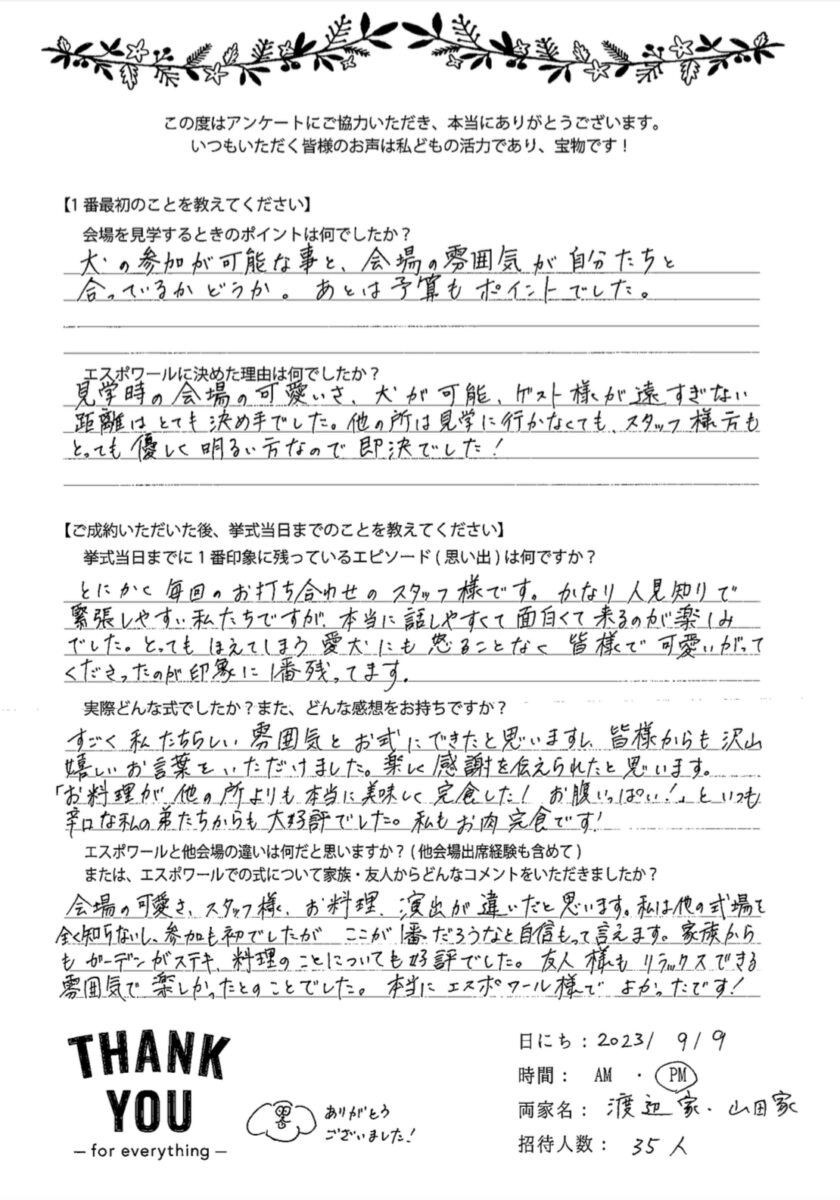 この度はアンケートにご協力いただき、本当にありがとうございます。
いつもいただく皆様のお声は私どもの活力であり、宝物です！
【1番最初のことを教えてください】
会場を見学するときのポイントは何でしたか？
犬の参加が可能な事と、会場の雰囲気が自分たちと
合っているかどうか。あとは予算もポイントでした。
エスポワールに決めた理由は何でしたか？
見学時の会場の可愛いさ、犬が可能、ゲスト様が遠すぎない
距離はとても決め手でした。他の所は見学に行かなくても、スタッフ様方も
とっても優しく明るい方なので即決でした！
【ご成約いただいた後、挙式当日までのことを教えてください】
挙式当日までに1番印象に残っているエピソード(思い出)は何ですか？
とにかく毎回のお打ち合わせのスタッフ様です。かなり人見知りで
緊張しやすい私たちですが、本当に話しやすくて面白くて来るのが楽しみ
でした。とってもほえてしまう愛犬にも怒ることなく皆様で可愛いがって
くださったのが印象に1番残ってます。
実際どんな式でしたか？また、どんな感想をお持ちですか？
すごく私たちらしい雰囲気とお式にできたと思いますし、皆様からも沢山
嬉しいお言葉をいただけました。楽しく感謝を伝えられたと思います。
「お料理が、他の所よりも本当に美味しく完食した！お腹いっぱい！」といつも
辛口な私の弟たちからも大好評でした。私もお肉完食です！
エスポワールと他会場の違いは何だと思いますか？(他会場出席経験も含めて)
または、エスポワールでの式について家族・友人からどんなコメントをいただきましたか？
会場の可愛さ、スタッフ様、お料理、演出が違いだと思います。私は他の式場を
全く知らないし、参加も初でしたが ここが1番だろうなと自信もって言えます。家族から
もガーデンがステキ、料理のことについても好評でした。友人様もリラックスできる
雰囲気で楽しかったとのことでした。本当にエスポワール様でよかったです！
THANK
YOU
－for everything－
ありがとう
ございました！
日にち：2023/9/9
時間： AM ・ PM
両家名：渡辺家・山田家
招待人数：35人